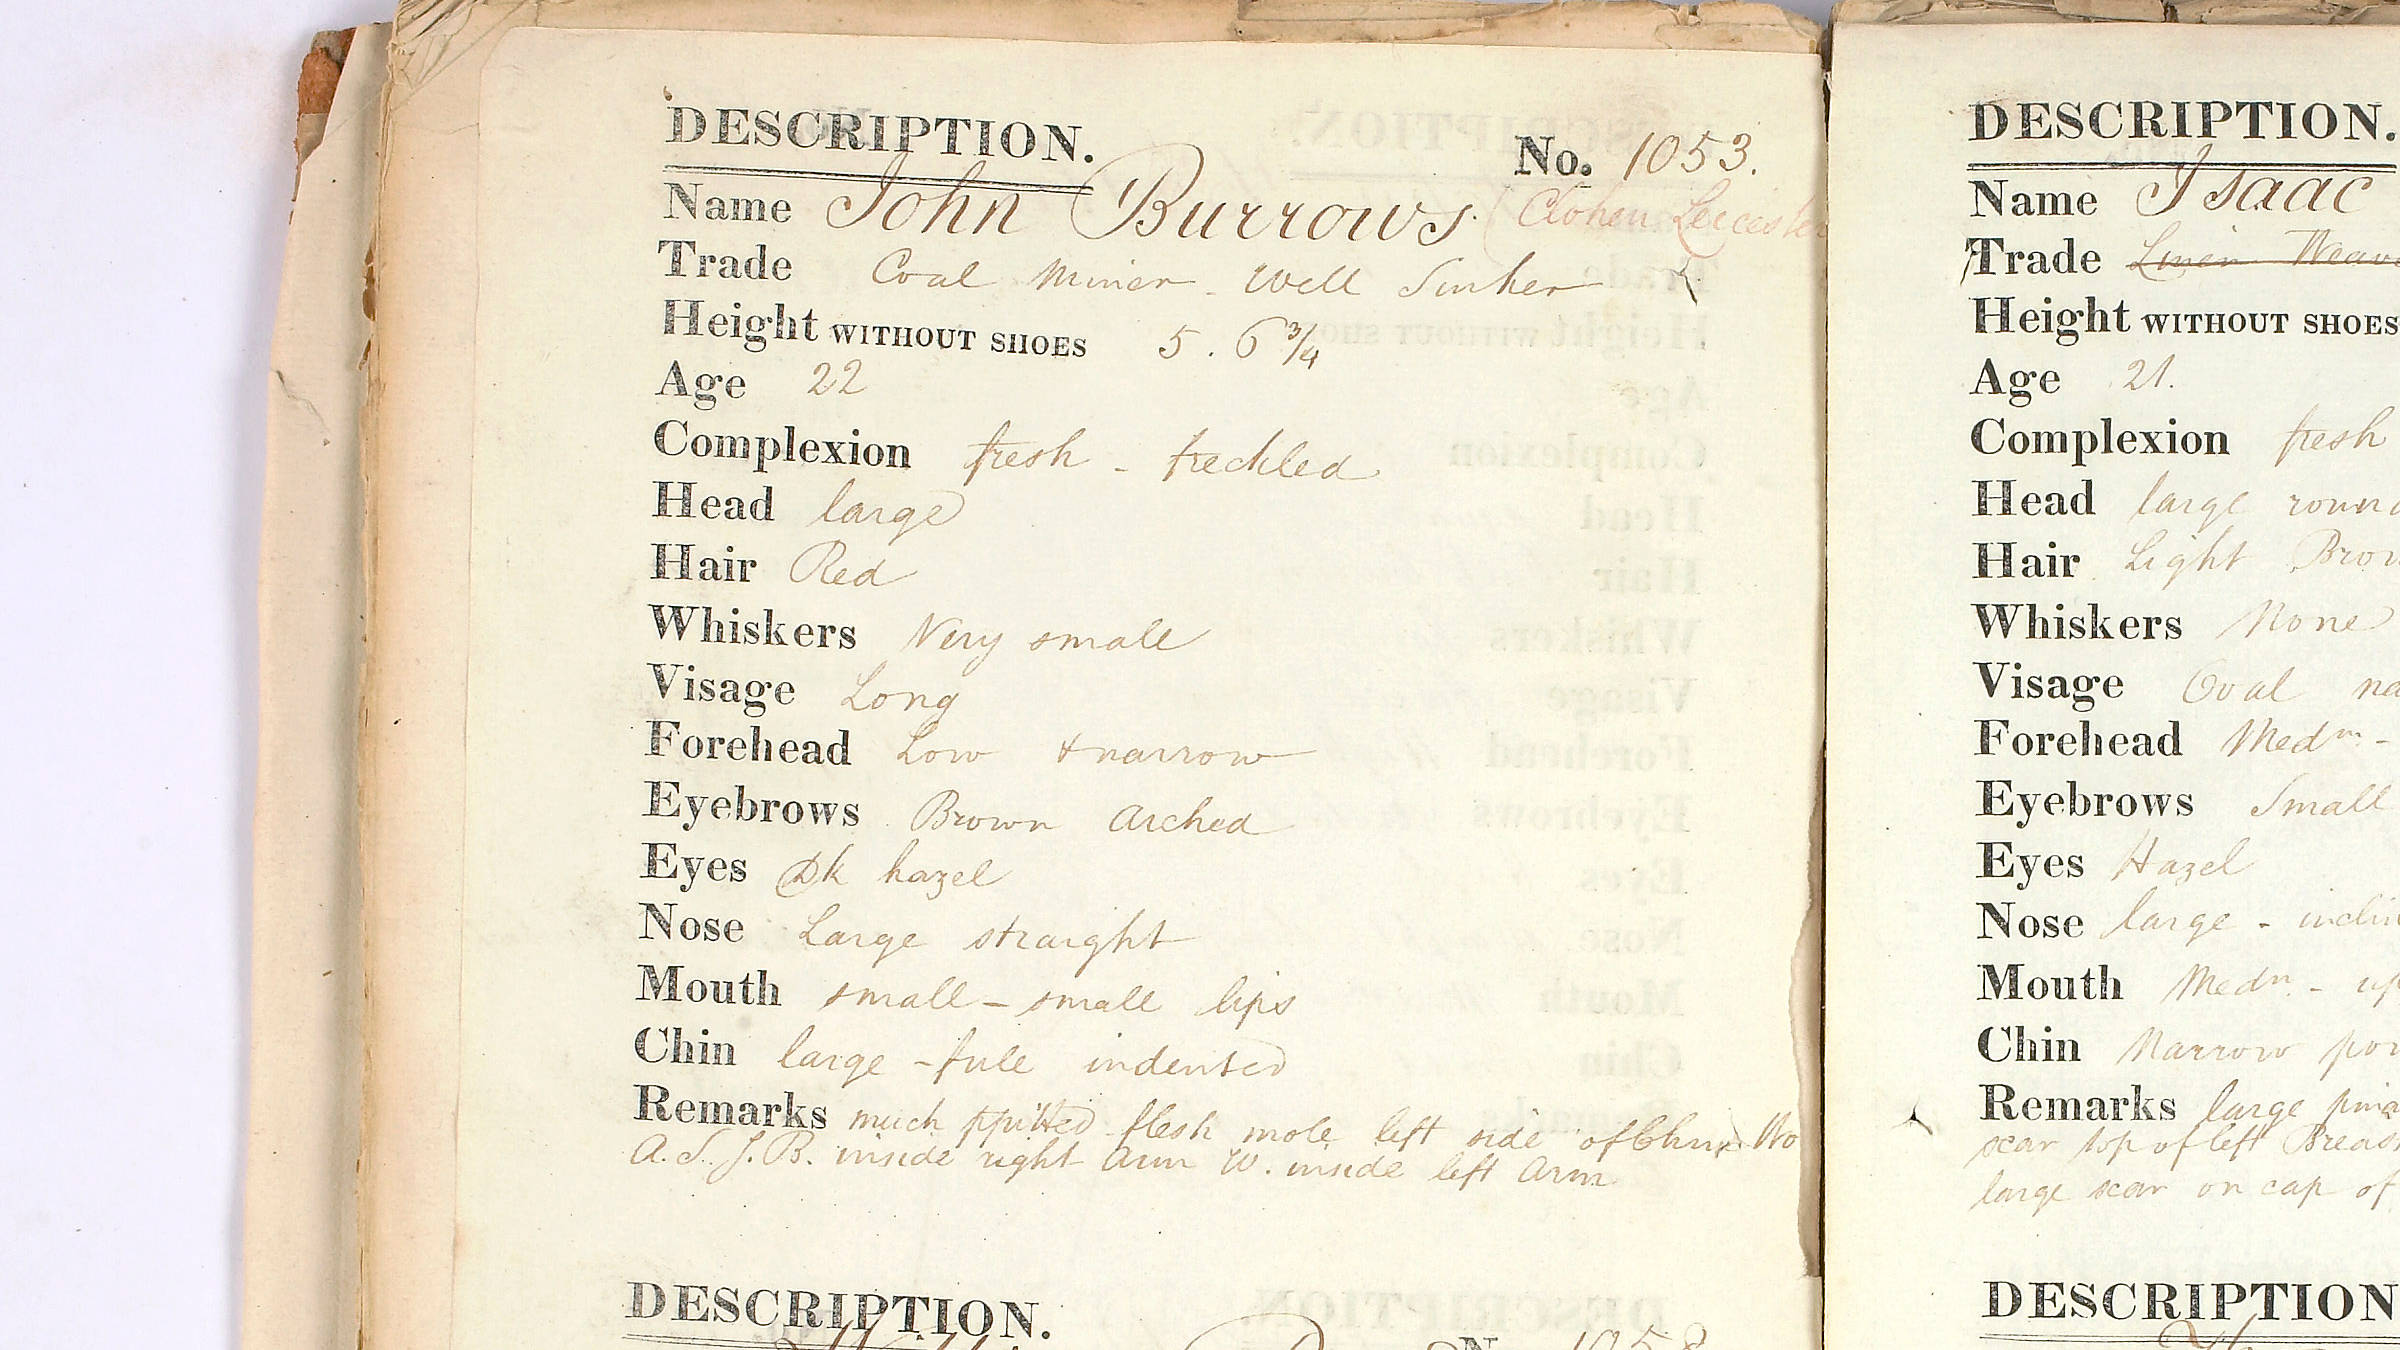 DESCRIPTION.
No. 1053.
Name John Burrows (Clohen Leicester
Trade Coal Miner - Well Sinker
Height WITHOUT SHOES 5. 6 3/4
Age 22
Complexion fresh - freckled
Head large
Hair Red
Whiskers Very small
Visage Long
Forehead Low & narrow
Eyebrows Brown arched
Eyes Dk hazel
Nose Large straight
Mouth small - small lips
Chin large - full indented
Remarks much ppitted flesh mole left side of Chin Wo
A. S. J. B. inside right arm W. inside left arm
DESCRIPTION.
DESCRIPTION.
Name Isaac
Trade Linen Weav
Height WITHOUT SHOES
Age 21.
Complexion fresh
Head large roun
Hair Light Brow
Whiskers None
Visage Oval na
Forehead Medm -
Eyebrows Small
Eyes Hazel
Nose large - inclin
Mouth Medm - up
Chin Narrow poi
Remarks large
scar top of left Breas
large scar on cap of
DESCRIPTION